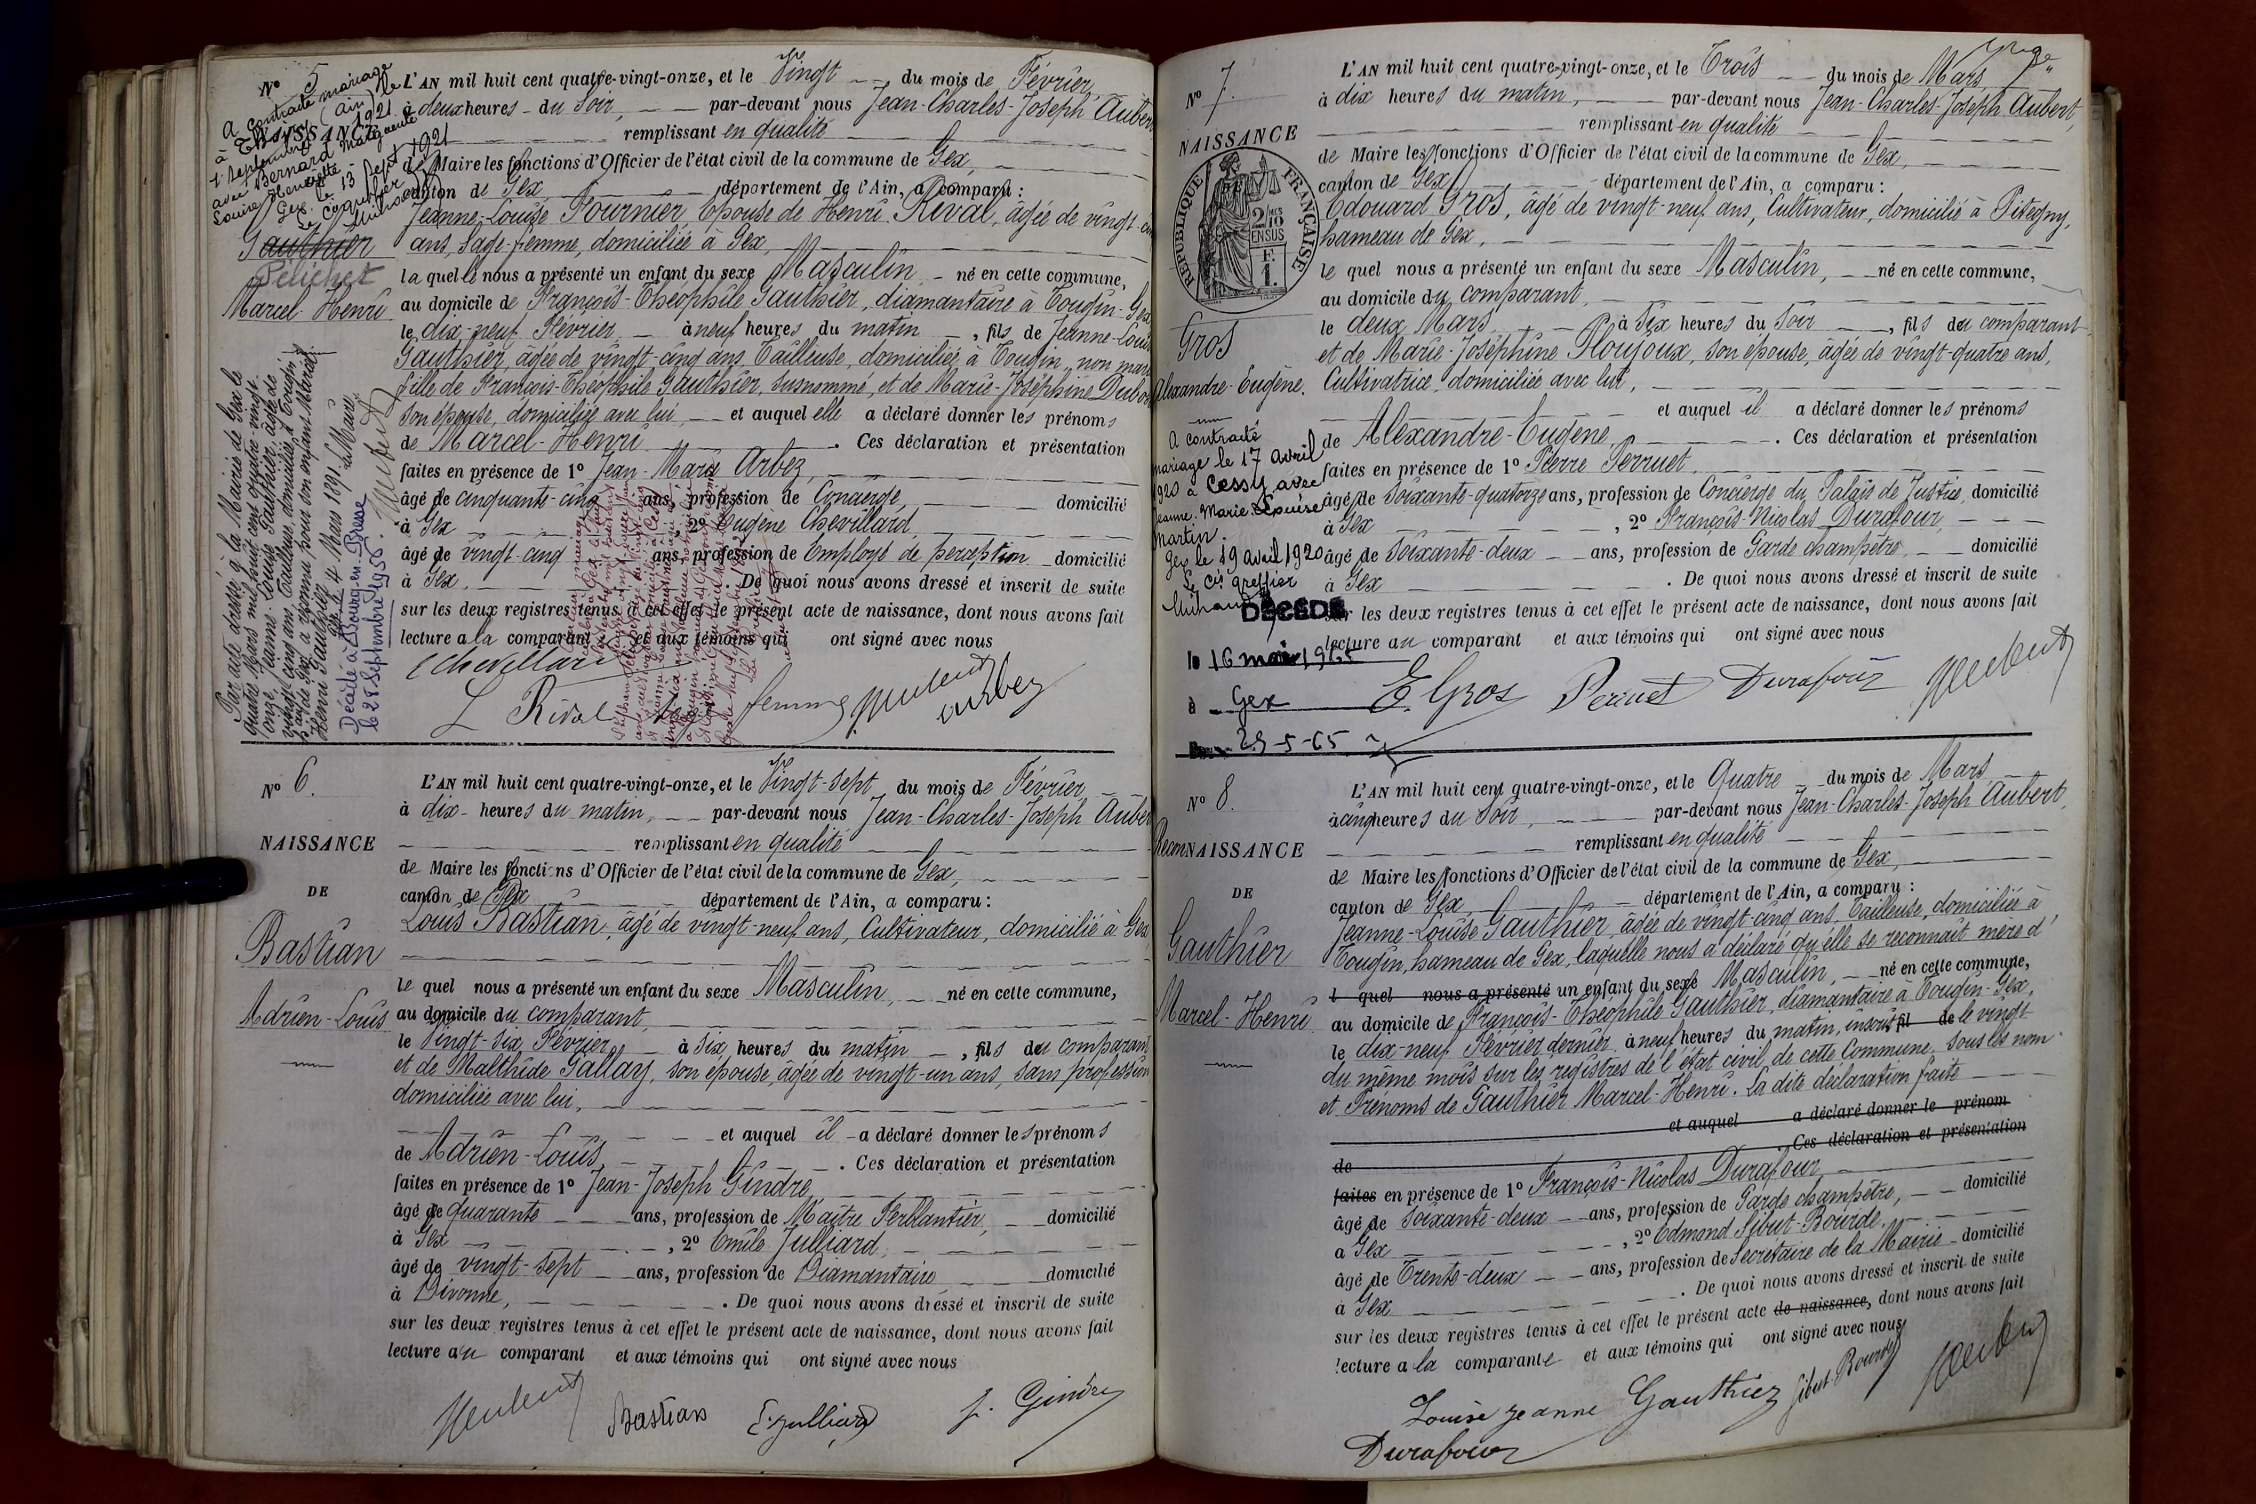 N° 5
A contracté mariage
à Thoissey (Ain) le
1 septembre 1921
avec Bernard Marguerite
Louise Henriette
Gex le 13 Sept 1921
NAISSANCE
Gauthier
Pélichet
Marcel-Henri
Par acte dressé à la Mairie de Gex le
quatre Mars mil huit cent quatre vingt
onze, Jeanne-Louise Gauthier, âgée de
vingt cinq ans, Tailleuse, domiciliée à Tougin
a reconnu pour son enfant Marcel
Henri Gauthier.
Gex le 4 Mars 1891 Le Maire
Décédé à Bourg-en-Bresse
le 28 Septembre 1956.
L'AN mil huit cent quatre-vingt-onze, et le Vingt du mois de Février,
à deux heures du Soir, par-devant nous Jean-Charles-Joseph Aubert
remplissant en qualité
de Maire les fonctions d'Officier de l'état civil de la commune de Gex,
canton de Gex, département de l'Ain, a comparu :
Jeanne-Louise Fournier Epouse de Henri Rival, âgée de vingt-
ans, Sage-femme, domiciliée à Gex,
laquelle nous a présenté un enfant du sexe Masculin, né en cette commune,
au domicile de François-Théophile Gauthier, diamantaire à Tougin-Gex
le dix-neuf Février à neuf heures du matin, fils de Jeanne-Louise
Gauthier, âgée de vingt-cinq ans Tailleuse, domiciliée à Tougin, non mariée
fille de François-Théophile Gauthier, susnommé, et de Marie-Joséphine Dubois
son épouse, domiciliée avec lui, et auquel elle a déclaré donner les prénoms
de Marcel-Henri. Ces déclaration et présentation
faites en présence de 1° Jean-Marie Arbez,
âgé de cinquante-cinq ans, profession de Concierge, domicilié
à Gex, 2° Eugène Chevillard,
âgé de vingt-cinq ans, profession de Employé de perception domicilié
à Gex. De quoi nous avons dressé et inscrit de suite
sur les deux registres tenus à cet effet le présent acte de naissance, dont nous avons fait
lecture a la comparant et aux témoins qui ont signé avec nous
Chevillard
L Rival sage femme Aubert
Arbez
N° 6.
NAISSANCE
DE
Bastian
Adrien-Louis
L'AN mil huit cent quatre-vingt-onze, et le Vingt-sept du mois de Février
à dix heures du matin, par-devant nous Jean-Charles-Joseph Aubert
remplissant en qualité
de Maire les fonctions d'Officier de l'état civil de la commune de Gex,
canton de Gex département de l'Ain, a comparu :
Louis Bastian, âgé de vingt-neuf ans, Cultivateur, domicilié à Gex
le quel nous a présenté un enfant du sexe Masculin, né en cette commune,
au domicile du comparant,
le Vingt-six Février à six heures du matin, fils du comparant
et de Malthide Gallay, son épouse, âgée de vingt-un ans, sans profession
domiciliée avec lui,
et auquel il a déclaré donner les prénoms
de Adrien-Louis. Ces déclaration et présentation
faites en présence de 1° Jean-Joseph Gindre,
âgé de quarante ans, profession de Maître Ferblantier, domicilié
à Gex, 2° Emile Julliard,
âgé de vingt-sept ans, profession de Diamantaire domicilié
à Divonne, . De quoi nous avons dressé et inscrit de suite
sur les deux registres tenus à cet effet le présent acte de naissance, dont nous avons fait
lecture au comparant et aux témoins qui ont signé avec nous
Aubert Bastian E. Julliard J. Gindre
N° 7.
NAISSANCE
RÉPUBLIQUE FRANÇAISE
2/10 EN SUS
F. 1.
Gros
Alexandre-Eugène.
A contracté
mariage le 17 avril
1920 à Cessy avec
Jeanne-Marie-Louise
Martin.
Gex le 19 avril 1920
Le Cis greffier
Michaud
DÉCÉDÉ
le 16 mai 1965
à Gex
29-5-65
L'AN mil huit cent quatre-vingt-onze, et le Trois du mois de Mars,
à dix heures du matin, par-devant nous Jean-Charles-Joseph Aubert,
remplissant en qualité
de Maire les fonctions d'Officier de l'état civil de la commune de Gex,
canton de Gex département de l'Ain, a comparu :
Edouard Gros, âgé de vingt-neuf ans, Cultivateur, domicilié à Pitegny,
hameau de Gex,
le quel nous a présenté un enfant du sexe Masculin, né en cette commune,
au domicile du comparant,
le deux Mars à Six heures du Soir, fils du comparant
et de Marie-Joséphine Ploujoux, son épouse, âgée de vingt-quatre ans,
Cultivatrice domiciliée avec lui,
et auquel il a déclaré donner les prénoms
de Alexandre-Eugène. Ces déclaration et présentation
faites en présence de 1° Pierre Perruet
âgé de Soixante-quatorze ans, profession de Concierge du Palais de Justice, domicilié
à Gex, 2° François-Nicolas Durafour,
âgé de Soixante-deux ans, profession de Garde champêtre, domicilié
à Gex. De quoi nous avons dressé et inscrit de suite
sur les deux registres tenus à cet effet le présent acte de naissance, dont nous avons fait
lecture au comparant et aux témoins qui ont signé avec nous
E. Gros Perruet Durafour Aubert
N° 8.
ReconNAISSANCE
DE
Gauthier
Marcel-Henri
L'AN mil huit cent quatre-vingt-onze, et le Quatre du mois de Mars
à cinq heures du Soir, par-devant nous Jean-Charles-Joseph Aubert,
remplissant en qualité
de Maire les fonctions d'Officier de l'état civil de la commune de Gex,
canton de Gex département de l'Ain, a comparu :
Jeanne-Louise Gauthier, âgée de vingt-cinq ans, Tailleuse, domiciliée à
Tougin, hameau de Gex, laquelle nous a déclaré qu'elle se reconnait mère d'
l quel nous a présenté un enfant du sexe Masculin, né en cette commune,
au domicile de François-Théophile Gauthier, diamantaire à Tougin-Gex,
le dix-neuf Février dernier à neuf heures du matin, inscrit fil de le vingt
du même mois sur les registres de l'état civil de cette Commune sous les nom
et Prénoms de Gauthier Marcel-Henri. La dite déclaration faite
et auquel a déclaré donner le prénom
de . Ces déclaration et présentation
faites en présence de 1° François-Nicolas Durafour,
âgé de Soixante-deux ans, profession de Garde champêtre, domicilié
à Gex, 2° Edmond Sibut-Bourde,
âgé de Trente-deux ans, profession de Secrétaire de la Mairie domicilié
à Gex. De quoi nous avons dressé et inscrit de suite
sur les deux registres tenus à cet effet le présent acte de naissance, dont nous avons fait
lecture a la comparante et aux témoins qui ont signé avec nous
Louise Jeanne Gauthier Sibut-Bourde Aubert
Durafour